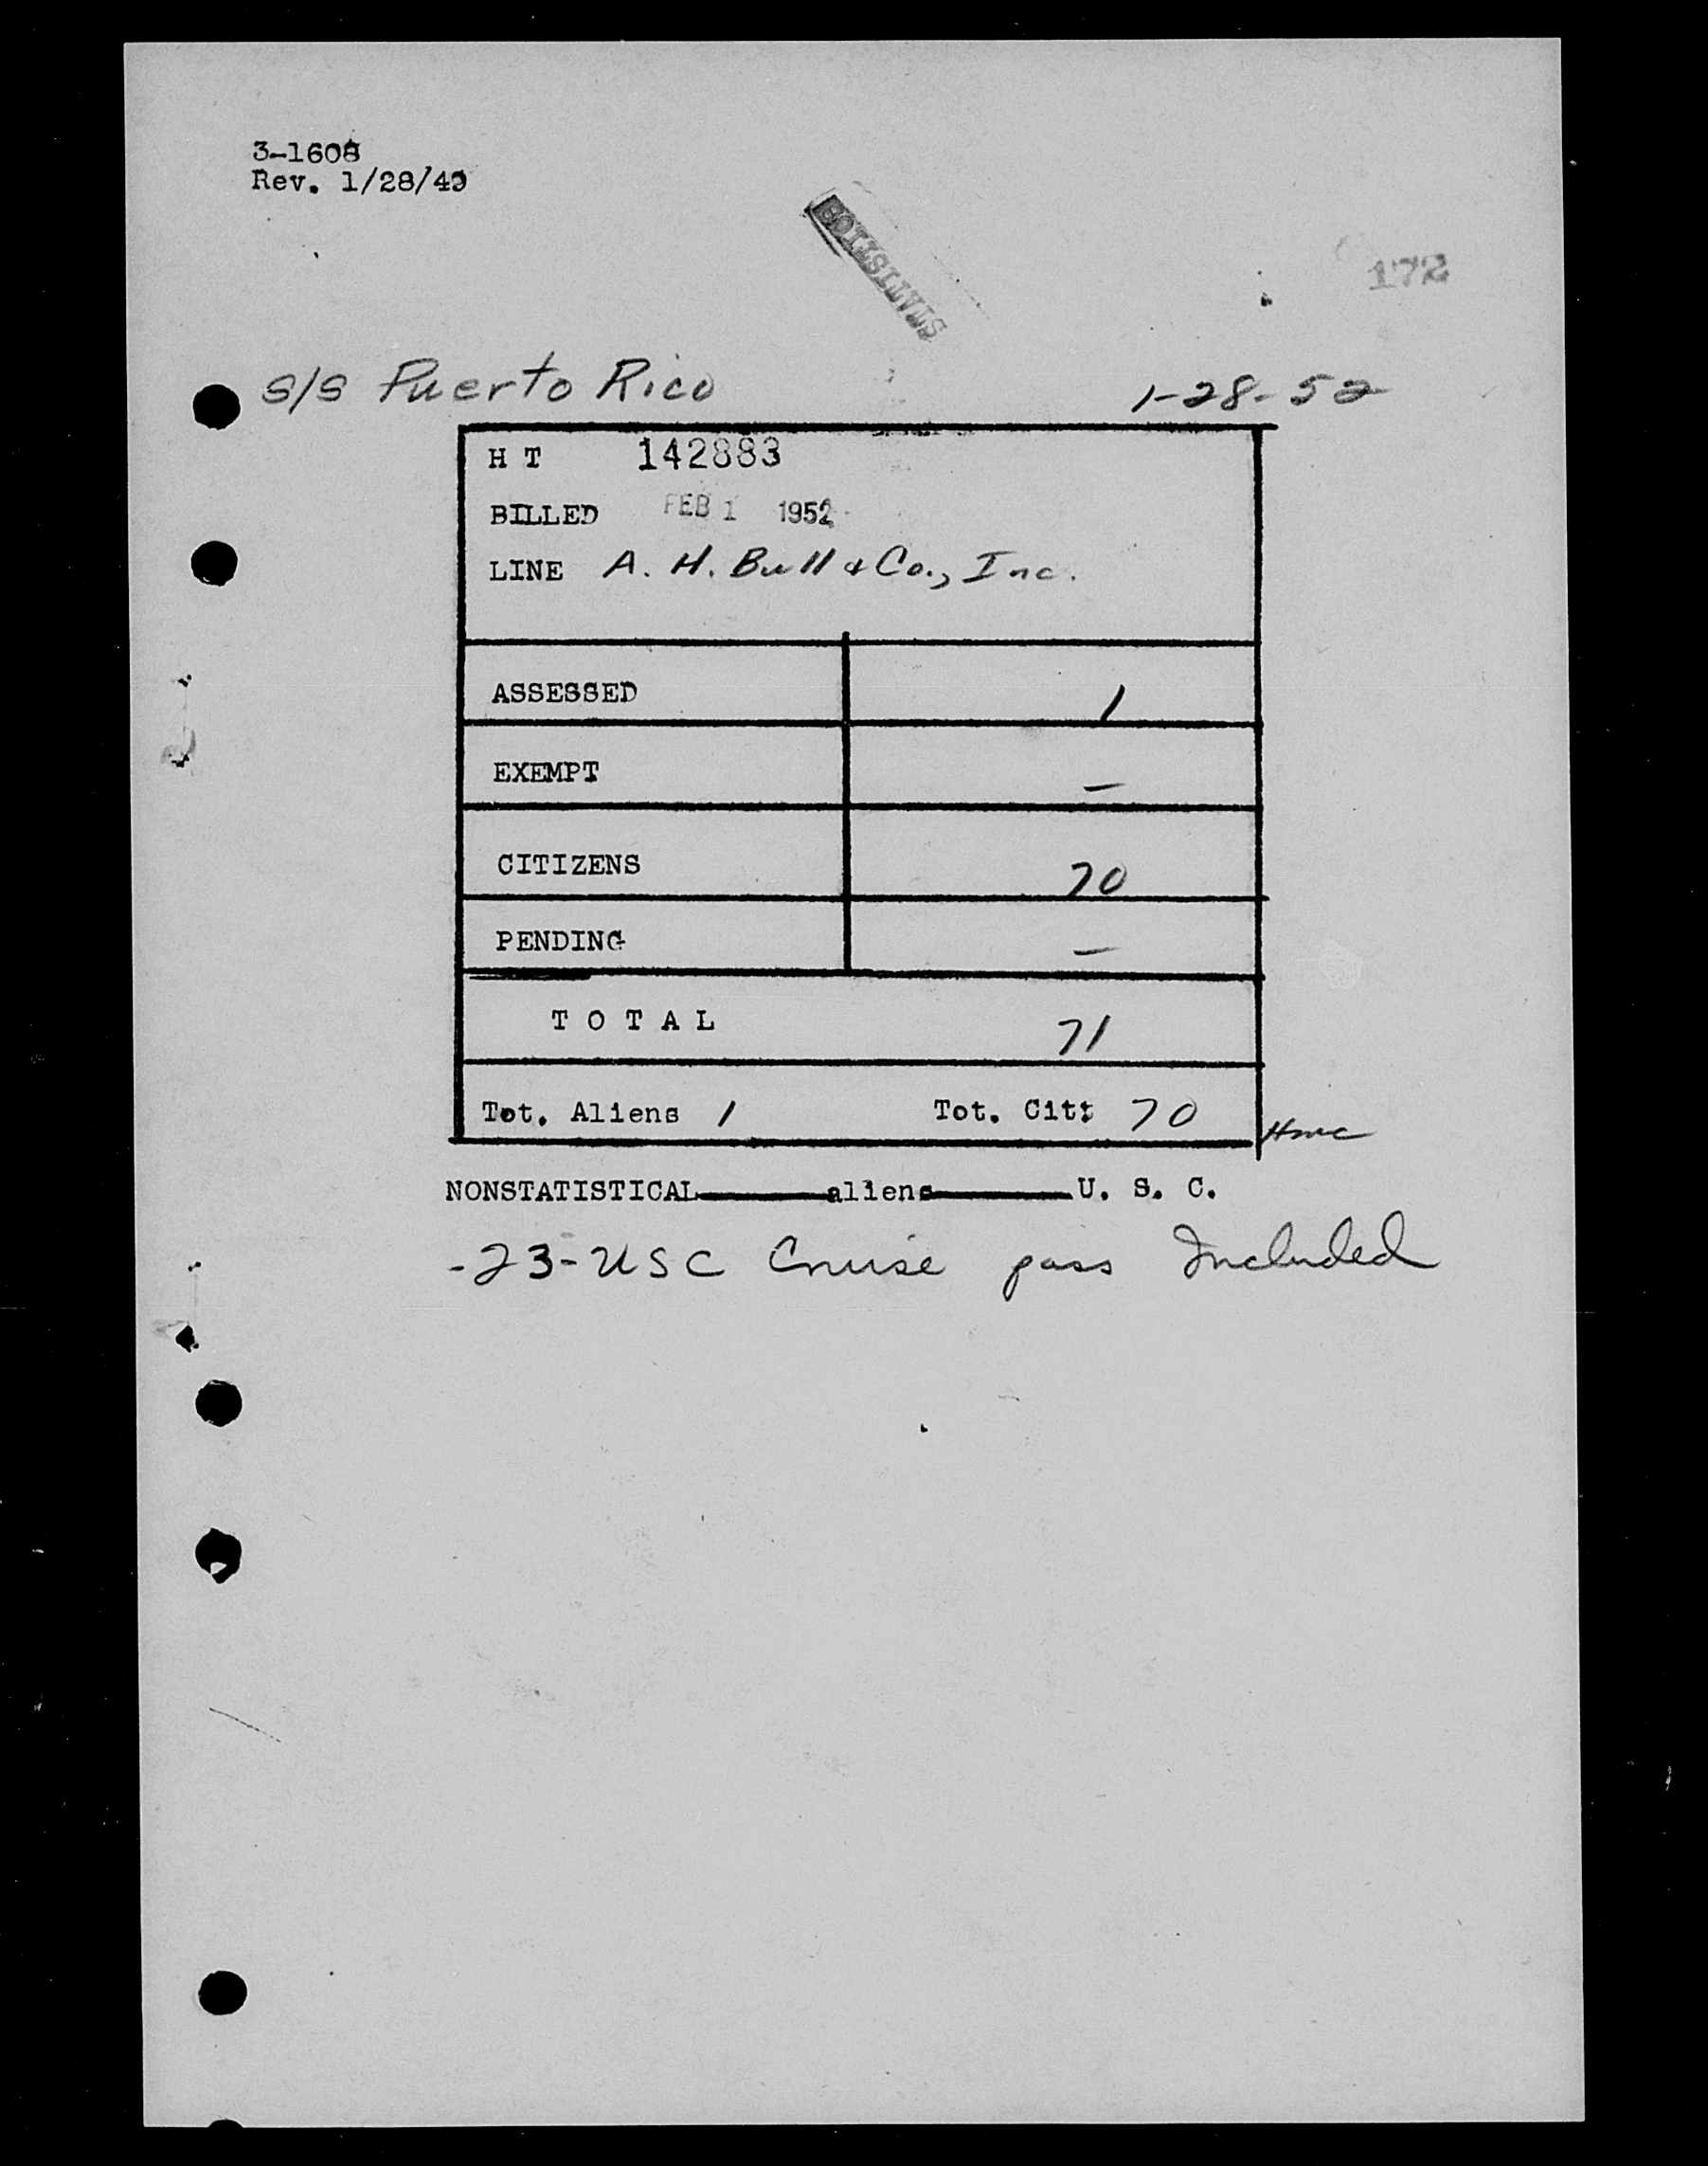 3-1608
Rev. 1/28/49
172
S/S Puerto Rico 1-28-52
H T 142883
BILLED FEB 1 1952
LINE A. H. Bull & Co., Inc.
ASSESSED 1
EXEMPT –
CITIZENS 70
PENDING –
T O T A L 71
Tot. Aliens 1 Tot. Cit: 70
NONSTATISTICAL aliens U. S. C.
-23-USC Cruise pass Included